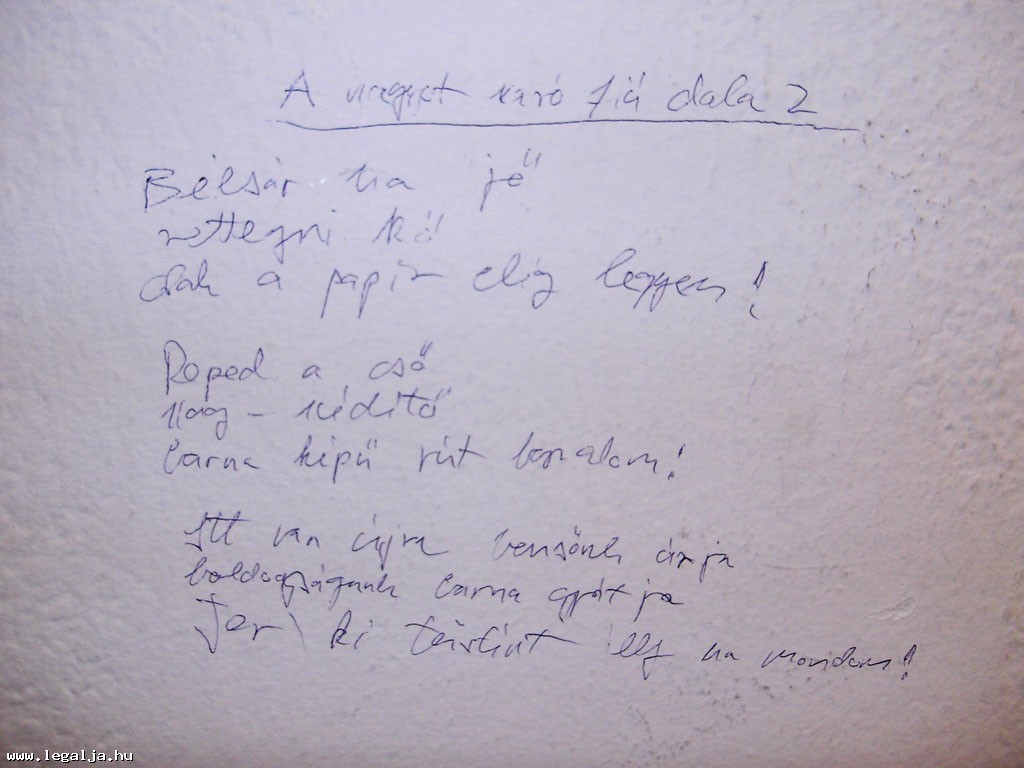 A nagyot xaró fiú dala 2
Bélsár ha jő
rettegni kő
csak a papír elég legyen!
Reped a cső
xédítő
barna képű rút borzalom!
Itt van újra bensőnk árja
boldogságunk barna gyártja
Jer ki ha mondom!
www.legalja.hu